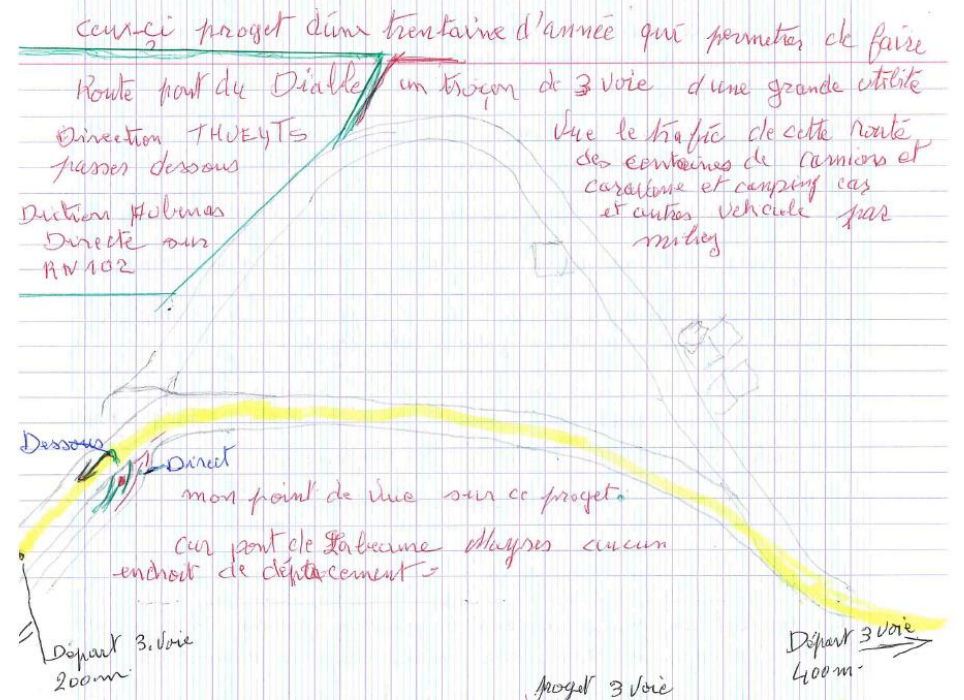 ceux-ci proget d'une trentaine d'année qui permetras de faire
Route pont du Diable un troçon de 3 voie d'une grande utilité
Direction THUEYTS
passer dessous
Diction Aubenas
Directe sur
RN 102
Vue le trafic de cette route
des centaines de camions et
caravane et camping cas
et autres vehicule par
Dessous
Direct
mon point de vue sur ce proget.
car pont de Labeaume Mayres aucun
endroit de déplacement
Départ 3 voie
200m
Départ 3 voie
400m
proget 3 voie